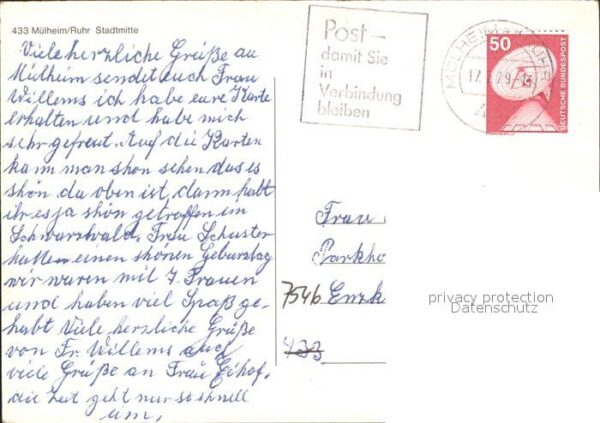 433 Mülheim/Ruhr Stadtmitte
Viele herzliche Grüße au
Mülheim sendet euch Frau
Willems ich habe eure Karte
erhalten und habe mich
sehr gefreut. Auf die Karten
kann man shon sehen das es
shön da oben ist, dann habt
ihr es ja shön getroffen im
Schwarzwald, Frau Schuster
hatte einen shönen Geburstag
wir waren mit 7 Frauen
und haben viel Spaß ge-
habt Viele herzliche Grüße
von Fr. Willems auch
viele Grüße an Frau Eihof,
die Zeit geht nur so shnell
um,
Post-
damit Sie
in
Verbindung
bleiben
MÜLHEIM
17
79
50
DEUTSCHE BUNDESPOST
Frau
Parkho
7546 Enzk
433
privacy protection
Datenschutz